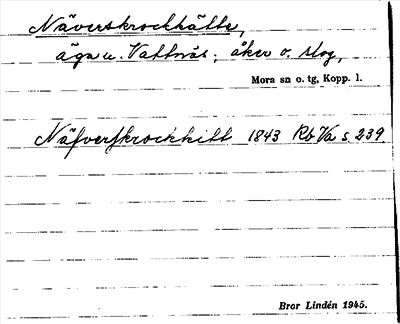 Näverskrockhätte,
äga u. Vattnäs; åker o. slog,
Mora sn o. tg, Kopp. l.
Näfverskrockhitt 1843 Rb Va s. 239.
Bror Lindén 1945.